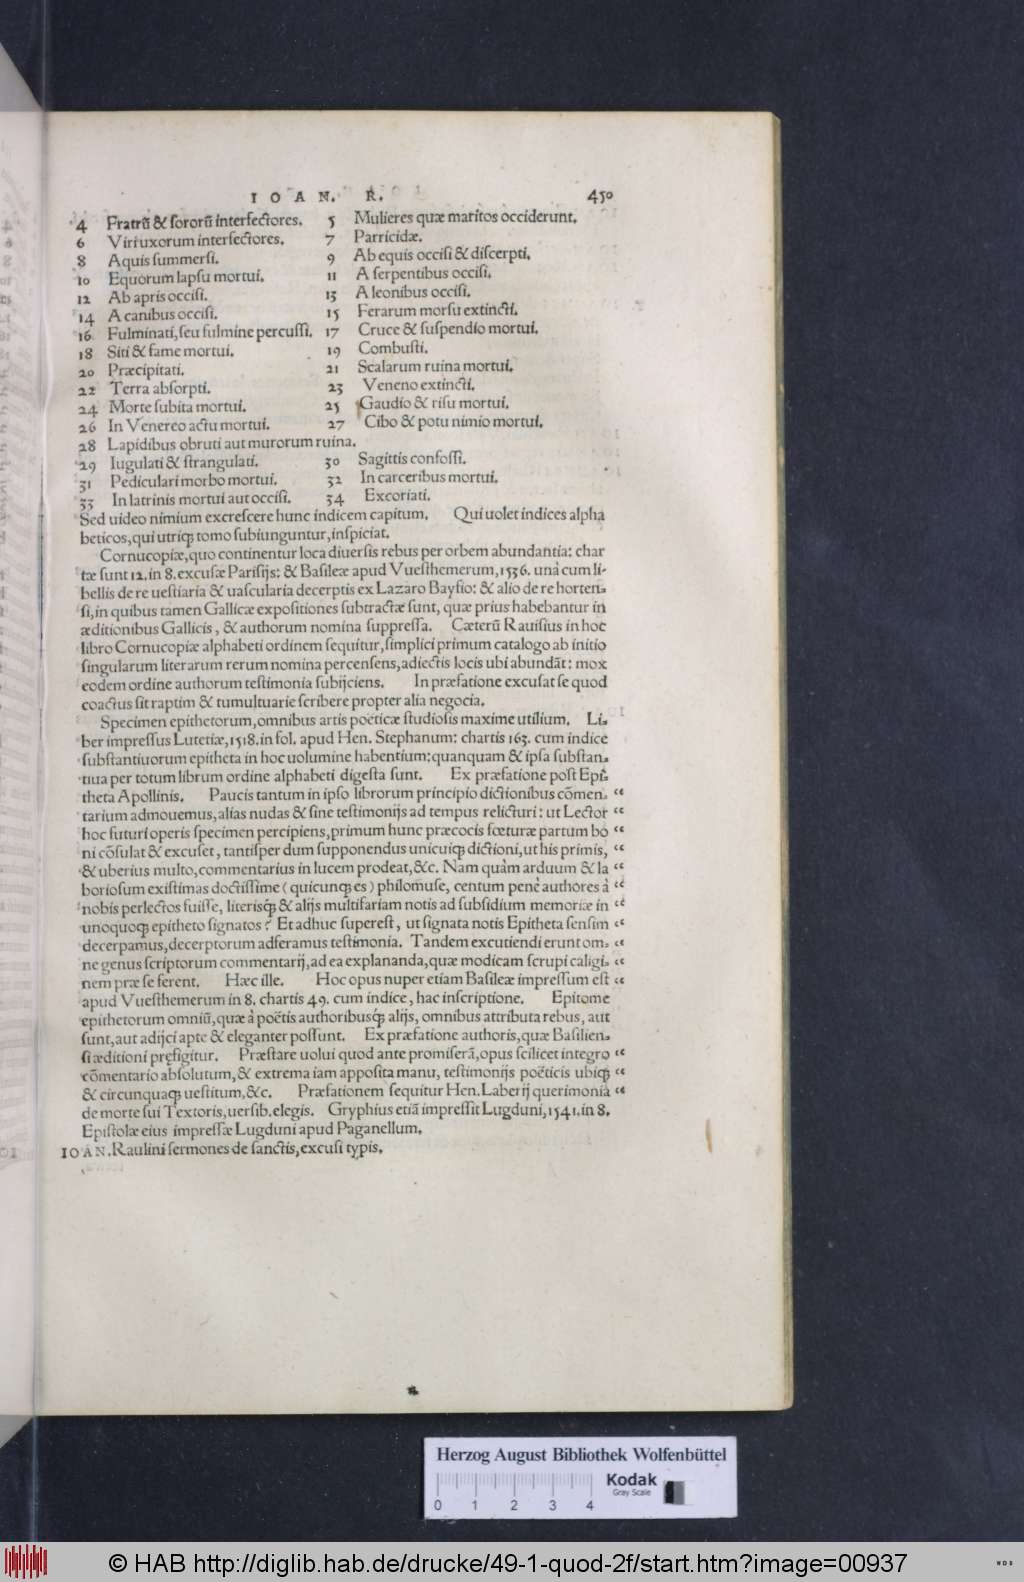 IOAN. R. 450
4 Fratrũ & ſororũ interfectores. 5 Mulieres quæ maritos occiderunt.
6 Viri uxorum interfectores. 7 Parricidæ.
8 Aquis ſummerſi. 9 Ab equis occiſi & diſcerpti.
10 Equorum lapſu mortui. 11 A ſerpentibus occiſi.
12 Ab apris occiſi. 13 A leonibus occiſi.
14 A canibus occiſi. 15 Ferarum morſu extincti.
16 Fulminati, ſeu fulmine percuſſi. 17 Cruce & ſuſpendio mortui.
18 Siti & fame mortui. 19 Combuſti.
20 Præcipitati. 21 Scalarum ruina mortui.
22 Terra abſorpti. 23 Veneno extincti.
24 Morte ſubita mortui. 25 Gaudio & riſu mortui.
26 In Venereo actu mortui. 27 Cibo & potu nimio mortui.
28 Lapidibus obruti aut murorum ruina.
29 Iugulati & ſtrangulati. 30 Sagittis confoſſi.
31 Pediculari morbo mortui. 32 In carceribus mortui.
33 In latrinis mortui aut occiſi. 34 Excoriati.
Sed uideo nimium excreſcere hunc indicem capitum. Qui uolet indices alpha
beticos, qui utriq; tomo ſubiunguntur, inſpiciat.
Cornucopiæ, quo continentur loca diuerſis rebus per orbem abundantia: char
tæ ſunt 12. in 8. excuſæ Pariſijs: & Baſileæ apud Vueſthemerum, 1536. unà cum li-
bellis de re ueſtiaria & uaſcularia decerptis ex Lazaro Bayfio: & alio de re horten-
ſi, in quibus tamen Gallicæ expoſitiones ſubtractæ ſunt, quæ prius habebantur in
æditionibus Gallicis, & authorum nomina ſuppreſſa. Cæterũ Rauiſius in hoc
libro Cornucopiæ alphabeti ordinem ſequitur, ſimplici primum catalogo ab initio
ſingularum literarum rerum nomina percenſens, adiectis locis ubi abundãt: mox
eodem ordine authorum teſtimonia ſubijciens. In præfatione excuſat ſe quod
coactus ſit raptim & tumultuarie ſcribere propter alia negocia.
Specimen epithetorum, omnibus artis poëticæ ſtudioſis maxime utilium. Li-
ber impreſſus Lutetiæ, 1518. in fol. apud Hen. Stephanum: chartis 163. cum indice
ſubſtantiuorum epitheta in hoc uolumine habentium: quanquam & ipſa ſubſtan-
tiua per totum librum ordine alphabeti digeſta ſunt. Ex præfatione poſt Epi-
theta Apollinis. Paucis tantum in ipſo librorum principio dictionibus cõmen- “
tarium admouemus, alias nudas & ſine teſtimonijs ad tempus relicturi: ut Lector “
hoc futuri operis ſpecimen percipiens, primum hunc præcocis fœturæ partum bo “
ni cõſulat & excuſet, tantiſper dum ſupponendus unicuiq; dictioni, ut his primis, “
& uberius multo, commentarius in lucem prodeat, &c. Nam quàm arduum & la “
borioſum exiſtimas doctiſſime (quicunq; es) philomuſe, centum penè authores à “
nobis perlectos fuiſſe, literisq; & alijs multifariam notis ad ſubſidium memoriæ in “
unoquoq; epitheto ſignatos? Et adhuc ſupereſt, ut ſignata notis Epitheta ſenſim “
decerpamus, decerptorum adferamus teſtimonia. Tandem excutiendi erunt om- “
ne genus ſcriptorum commentarij, ad ea explananda, quæ modicam ſcrupi caligi- “
nem præ ſe ferent. Hæc ille. Hoc opus nuper etiam Baſileæ impreſſum eſt “
apud Vueſthemerum in 8. chartis 49. cum indice, hac inſcriptione. Epitome
epithetorum omniũ, quæ à poëtis authoribusq; alijs, omnibus attributa rebus, aut
ſunt, aut adijci apte & eleganter poſſunt. Ex præfatione authoris, quæ Baſilien-
ſi æditioni pręfigitur. Præſtare uolui quod ante promiſerã, opus ſcilicet integro “
cõmentario abſolutum, & extrema iam appoſita manu, teſtimonijs poëticis ubiq; “
& circunquaq; ueſtitum, &c. Præfationem ſequitur Hen. Laberij querimonia “
de morte ſui Textoris, uerſib. elegis. Gryphius etiã impreſſit Lugduni, 1541. in 8.
Epiſtolæ eius impreſſæ Lugduni apud Paganellum.
IOAN. Raulini ſermones de ſanctis, excuſi typis.
Herzog August Bibliothek Wolfenbüttel
Kodak
Gray Scale
0 1 2 3 4
© HAB http://diglib.hab.de/drucke/49-1-quod-2f/start.htm?image=00937
WDB